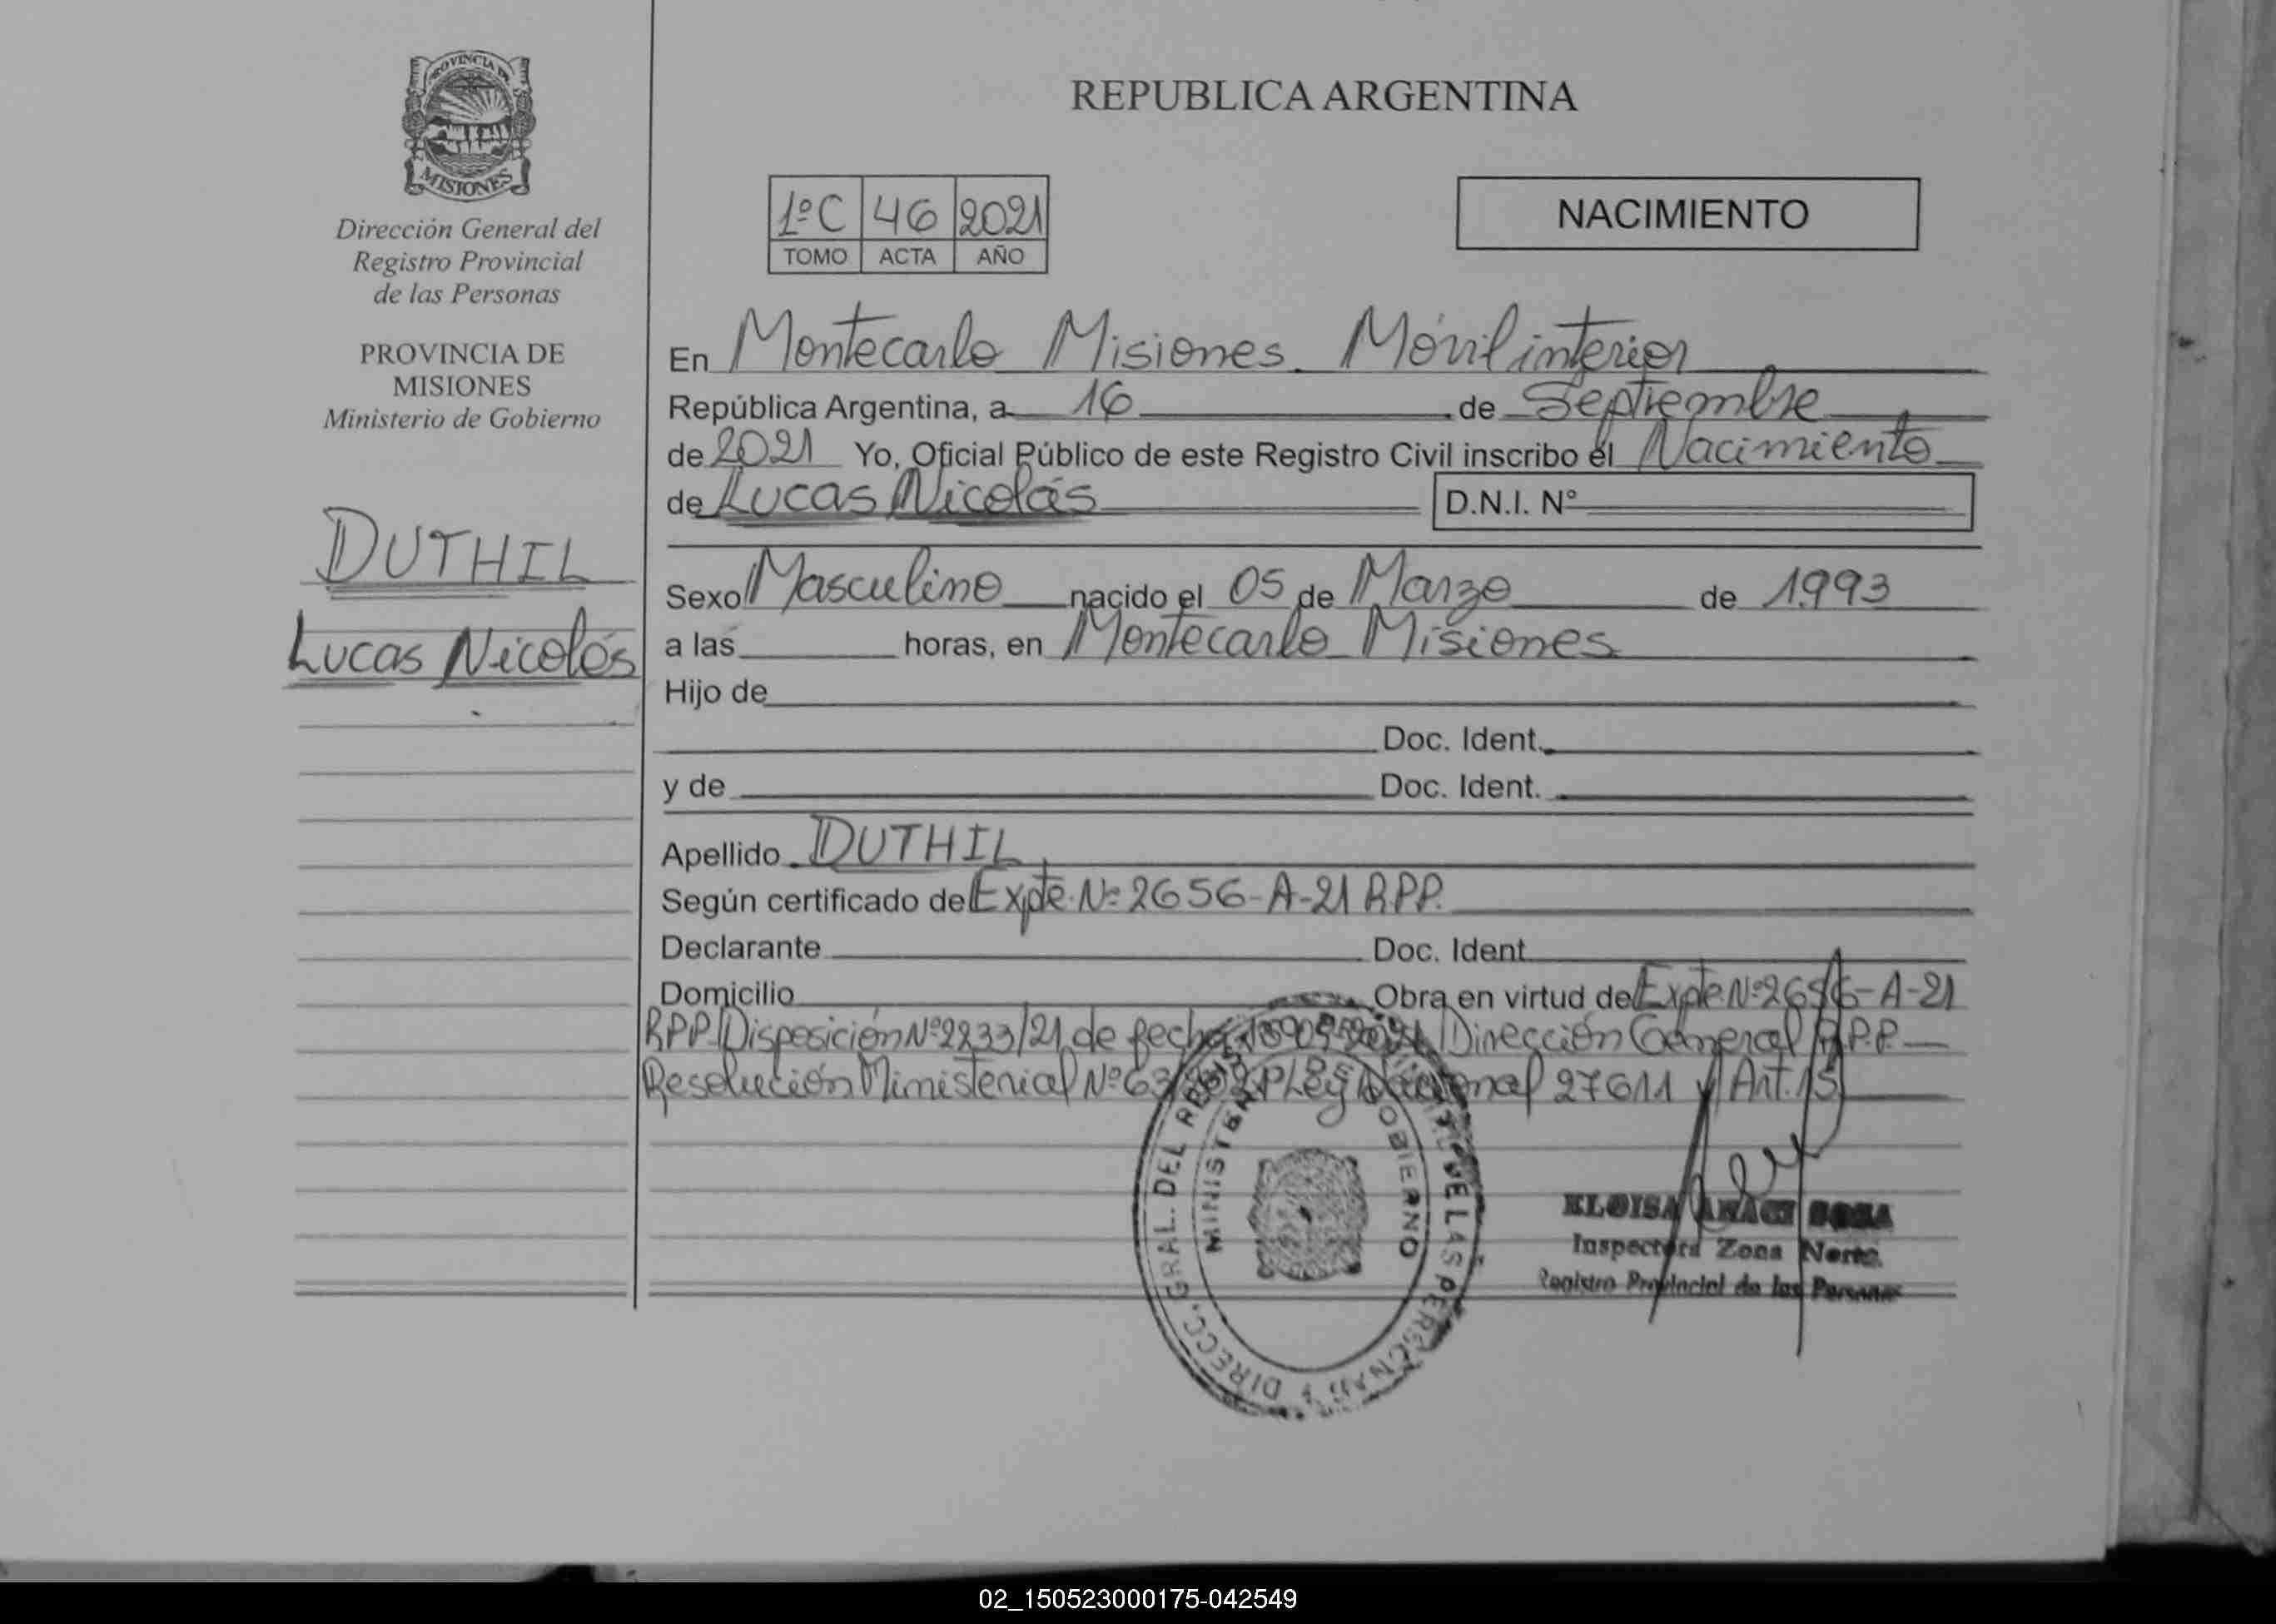 PROVINCIA DE
MISIONES
Dirección General del
Registro Provincial
de las Personas
PROVINCIA DE
MISIONES
Ministerio de Gobierno
DUTHIL
Lucas Nicolás
REPUBLICA ARGENTINA
1ºC 46 2021
TOMO ACTA AÑO
NACIMIENTO
En Montecarlo Misiones. Móvil interior
República Argentina, a 16 de Septiembre
de 2021 Yo, Oficial Público de este Registro Civil inscribo el Nacimiento
de Lucas Nicolás D.N.I. Nº
Sexo Masculino nacido el 05 de Marzo de 1993
a las horas, en Montecarlo Misiones
Hijo de
Doc. Ident.
y de Doc. Ident.
Apellido DUTHIL
Según certificado de Expte. Nº 2656-A-21 R.P.P.
Declarante Doc. Ident.
Domicilio Obra en virtud de Expte Nº 2656-A-21
RPP. Disposición Nº 2233/21 de fecha Dirección General R.P.P.
Resolución Ministerial Nº Ley Nacional 27611 y Art. 15
DIRECC. GRAL. DEL DE LAS PERSONAS
MINISTERIO GOBIERNO
ELOISA SOSA
Inspectora Zona Norte
Registro Provincial de las Personas
02_150523000175-042549